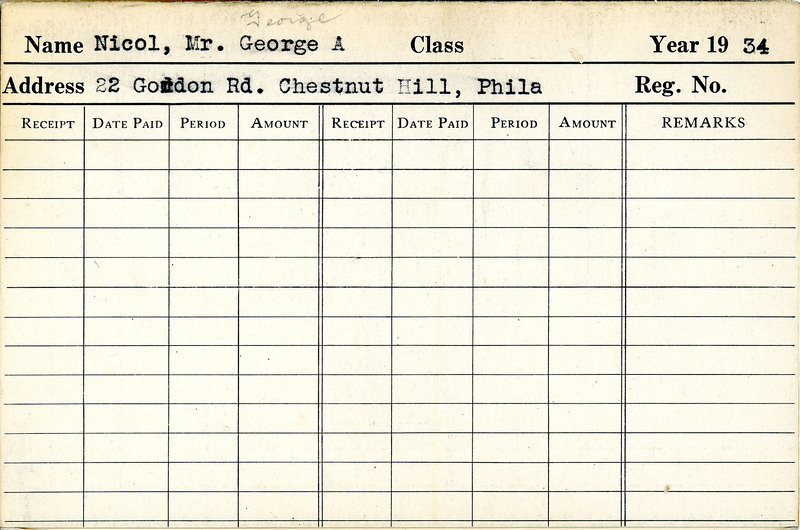 George
Name Nicol, Mr. George A Class Year 19 34
Address 22 Gordon Rd. Chestnut Hill, Phila Reg. No.
RECEIPT DATE PAID PERIOD AMOUNT RECEIPT DATE PAID PERIOD AMOUNT REMARKS